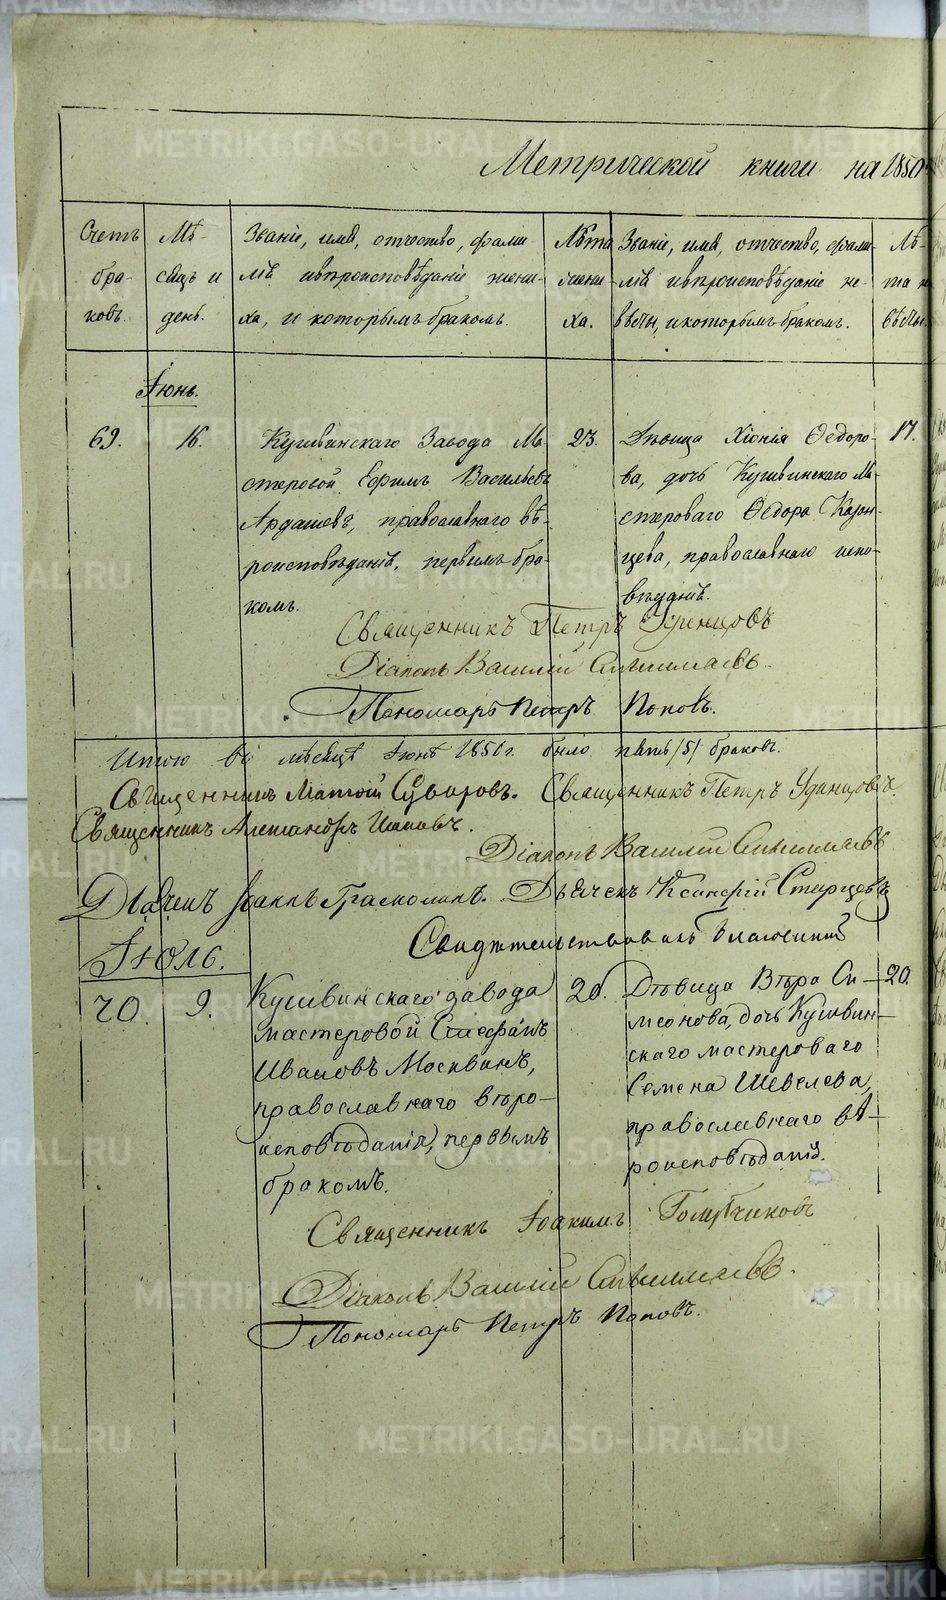 METRIKI.GASO-URAL.RU
Метрической книги на 1850
Счетъ бра- ковъ.
Мѣ- сяцъ и день.
Званіе, имя, отчество, фами-
лія и вѣроисповѣданіе жени-
ха, и которымъ бракомъ.
Лѣта жени- ха.
Званіе, имя, отчество, фами-
лія и вѣроисповѣданіе не-
вѣсты, и которымъ бракомъ.
Лѣ- та не вѣсты.
Іюнь.
69. 16.
Кушвинскаго Завода Ма-
стеровой Ефимъ Васильевъ
Ардашевъ, православнаго вѣ-
роисповѣданія, первымъ бра-
комъ.
23.
Дѣвица Хіонія Ѳедоро-
ва, дочь Кушвинскаго Ма-
стероваго Ѳедора Казан-
цева, православнаго испо-
вѣданія.
17.
Священникъ Петръ Удинцовъ
Діаконъ Василій
Пономарь Петръ Поповъ.
Итого въ мѣсяцѣ Іюнѣ 1850 г. было пять /5/ браковъ.
Священникъ Матѳій Суворовъ. Священникъ Петръ Удинцовъ.
Священникъ Александръ Поповъ.
Діаконъ Василій
Дьячекъ Іоаннъ. Дьячекъ Старцевъ
Свидѣтельствовалъ Благочинный
Іюль.
70. 9.
Кушвинскаго завода
мастеровой Стефанъ
Ивановъ Москвинъ,
православнаго вѣро-
исповѣданія, первымъ
бракомъ.
20.
Дѣвица Вѣра Си-
меонова, дочь Кушвин-
скаго мастероваго
Семена Шевелева,
православнаго вѣ-
роисповѣданія.
20.
Священникъ Іоакимъ Голубчиковъ
Діаконъ Василій
Пономарь Петръ Поповъ.